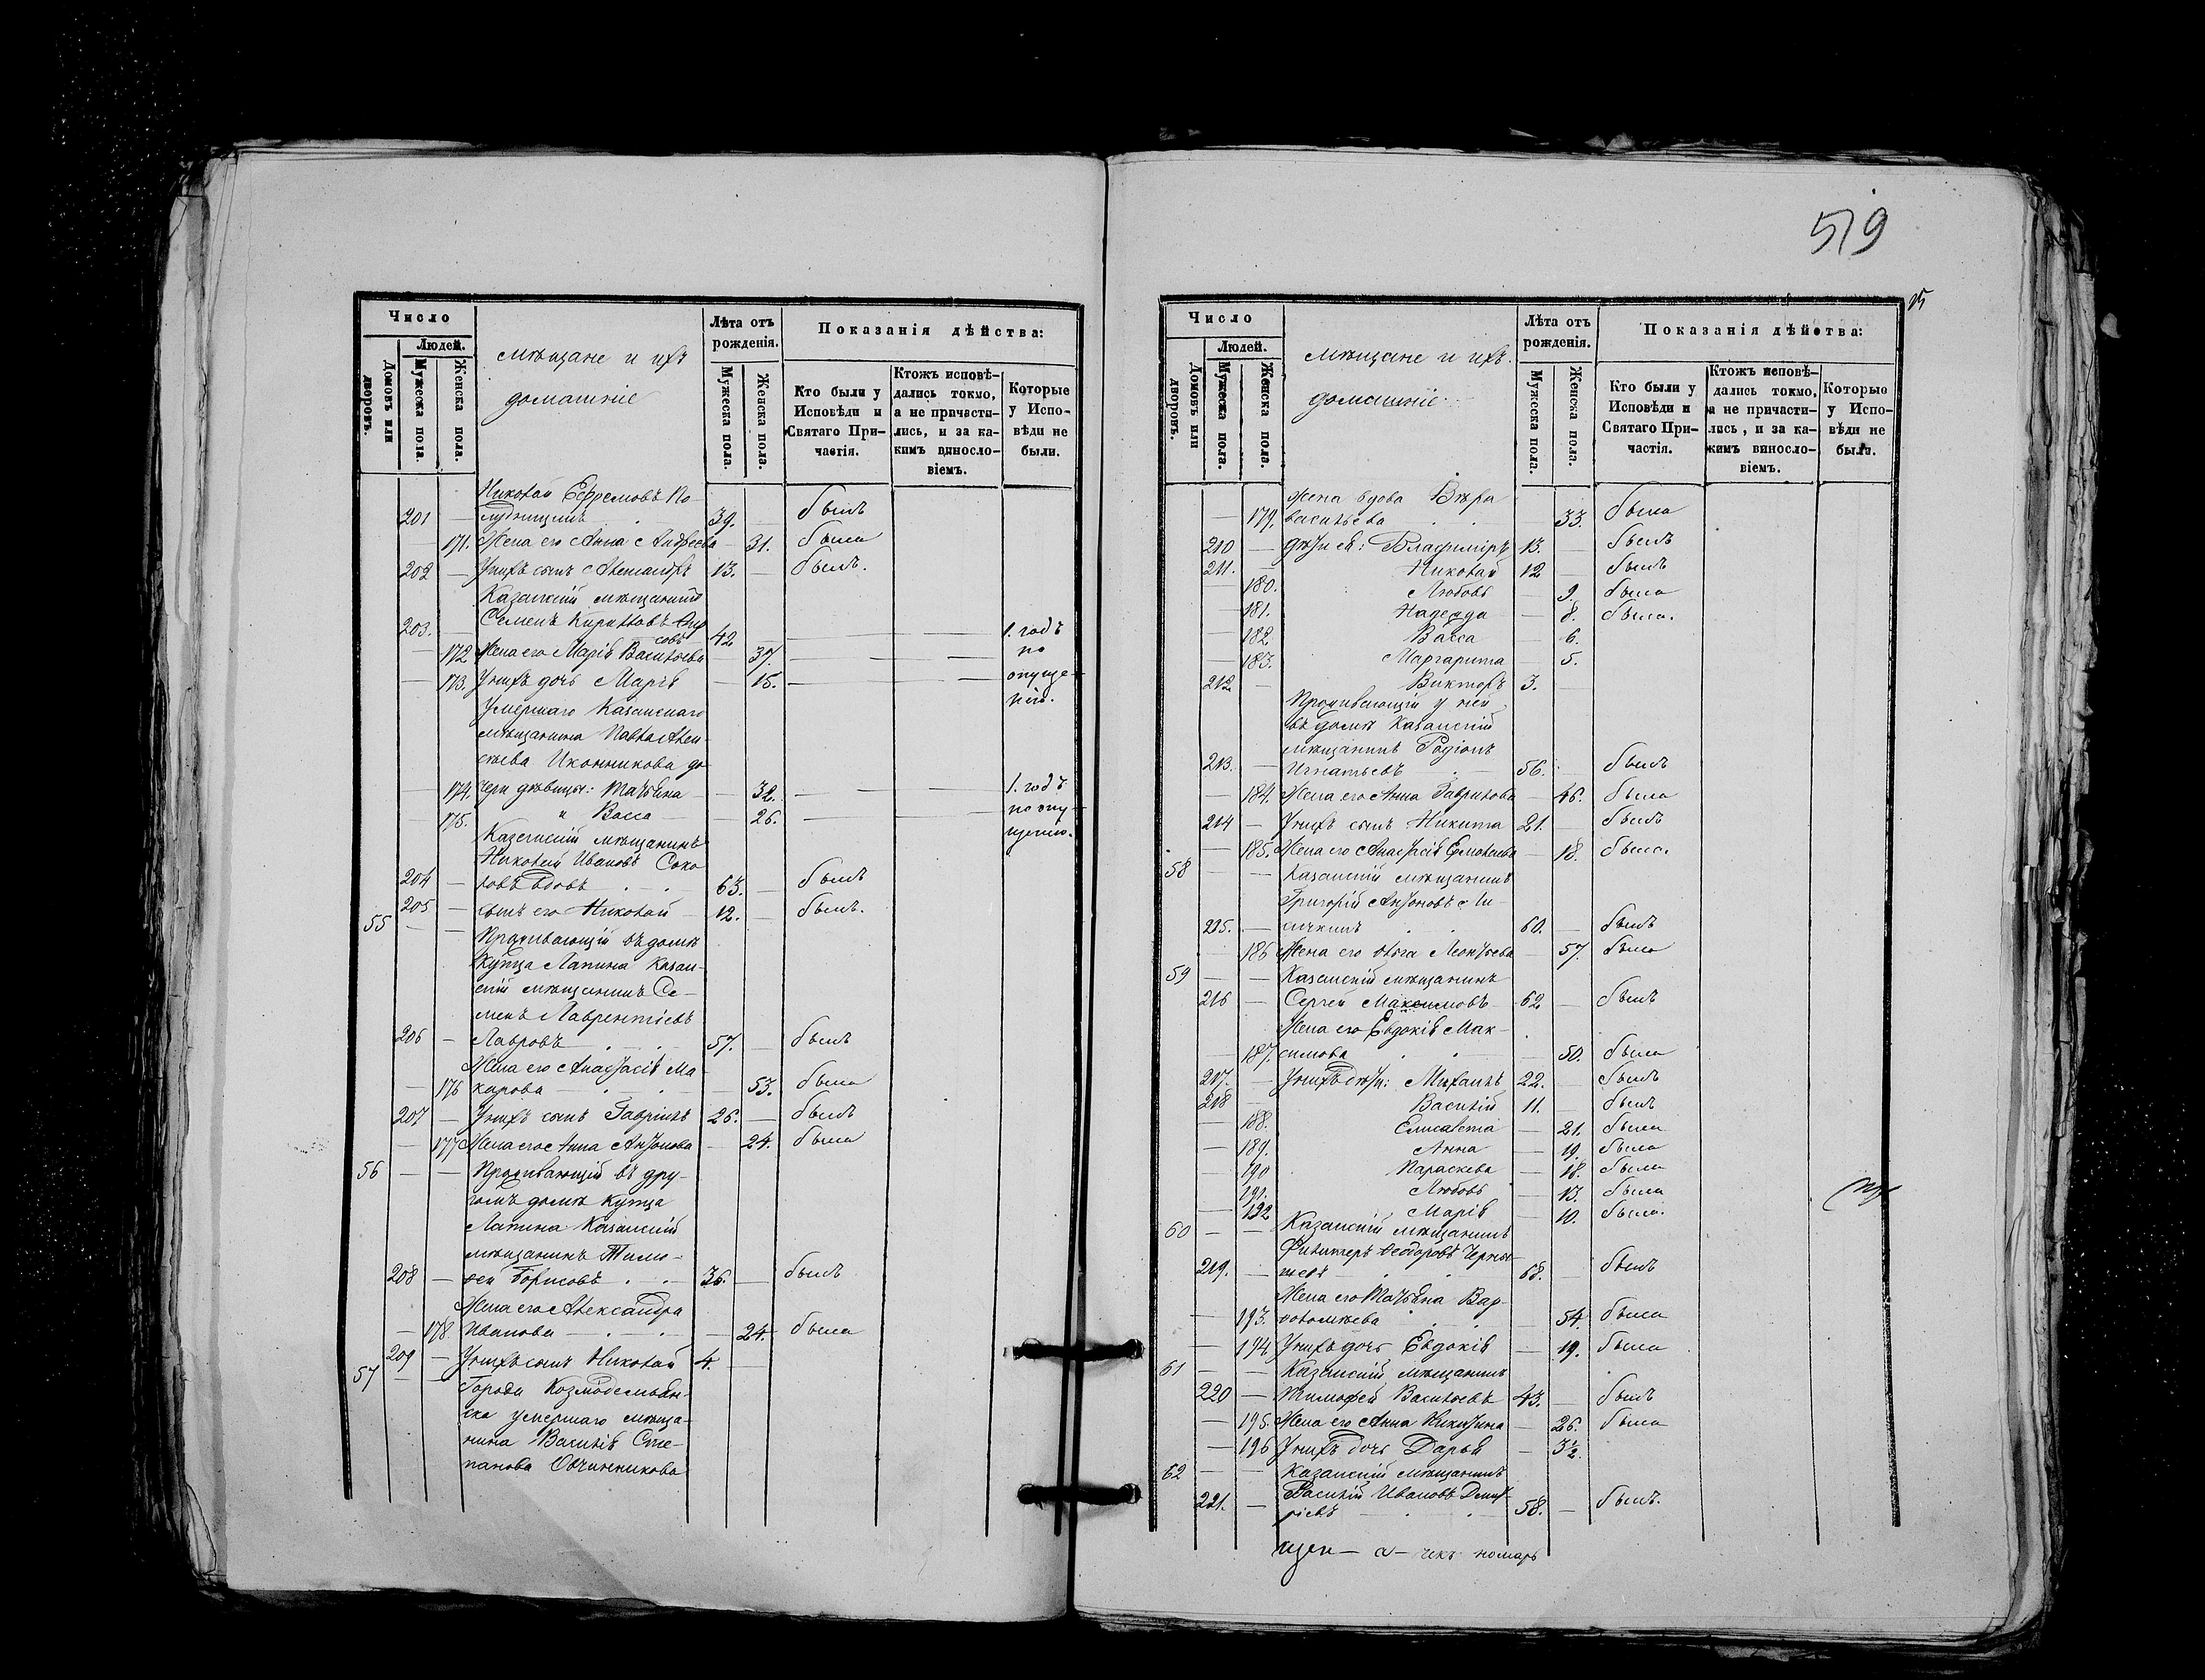 519
15
Число
Людей.
Домовъ или дворовъ.
Мужеска пола.
Женска пола.
мѣщане и ихъ
домашніе
Лѣта отъ рожденія.
Мужеска пола.
Женска пола.
Показанія дѣйства:
Кто были у Исповѣди и Святаго Причастія.
Ктожъ исповѣдались токмо, а не причастились, и за какимъ винословіемъ.
Которые у Исповѣди не были.
Николай Ефремовъ По-
201 — лудницинъ 39. — былъ
— 171. Жена его Анна Андреева — 31. была
202 — У нихъ сынъ Александръ 13. — былъ.
Казанскій мѣщанинъ
203. Семенъ Кириловъ 42 — — — 1. годъ
— 172 Жена его Марія Васильева — 37. — — по
— 173. У нихъ дочь Марія — 15. — опуще-
нію.
Умершаго Казанскаго
мѣщанина Павла Алек-
сѣева Иконникова до-
— 174. чери дѣвицы: Татьяна — 32. — — 1. годъ
— 175. " Васса — 26. — по опу-
щенію.
Казанскій мѣщанинъ
Николай Ивановъ Соко-
204 — ловъ вдовъ 63. — былъ
205 — сынъ его Николай 12. — былъ.
55 — — Проживающій въ домѣ
купца Лапина Казан-
скій мѣщанинъ Се-
менъ Лаврентіевъ
206 — Лавровъ 57. — былъ
Жена его Анастасія Ма-
— 176 карова — 53. была
207 — У нихъ сынъ Гавріилъ 26. — былъ
— 177 Жена его Анна Антонова — 24. была
56 — — Проживающій въ дру-
гомъ домѣ купца
Лапина Казанскій
мѣщанинъ Тимо-
208 — фей Борисовъ 36. — былъ
Жена его Александра
— 178. Иванова — 24. была
209 — У нихъ сынъ Николай 4. —
57 — — Города Козмодемьян-
ска умершаго мѣща-
нина Василія Сте-
панова Овчинникова
Число
Людей.
Домовъ или дворовъ.
Мужеска пола.
Женска пола.
мѣщане и ихъ
домашніе
Лѣта отъ рожденія.
Мужеска пола.
Женска пола.
Показанія дѣйства:
Кто были у Исповѣди и Святаго Причастія.
Ктожъ исповѣдались токмо, а не причастились, и за какимъ винословіемъ.
Которые у Исповѣди не были.
жена вдова Вѣра
— 179. Васильева 33. была
210 — дѣти ея: Владиміръ 13. — былъ
211. — Николай 12 — былъ
— 180. Любовь — 9. была
— 181. Надежда — 8. была.
— 182 Васса — 6.
— 183. Маргарита — 5.
212 — Викторъ 3. —
Проживающій у ней
въ домѣ Казанскій
мѣщанинъ Родіонъ
213. — Игнатьевъ 56. — былъ
— 184. Жена его Анна Гаврилова — 46. была
214 — У нихъ сынъ Никита 21. — былъ
— 185. Жена его Анастасія Ермолаева — 18. была.
58 — — Казанскій мѣщанинъ
Григорій Антоновъ
215. — 60. — былъ
— 186 Жена его Ольга Леонтьева — 57. была
59 — — Казанскій мѣщанинъ
216 — Сергей Максимовъ 62 — былъ
Жена его Евдокія Мак-
— 187. симова — 50. была
217. — У нихъ дѣти: Михаилъ 22. — былъ
218 — Василій 11. — былъ
— 188. Елисавета — 21. была
— 189. Анна — 19. была
— 190 Параскева — 18. была
— 191. Любовь — 13. была
— 192 Марія — 10. была.
60 — — Казанскій мѣщанинъ
Филитеръ Феодоровъ Черны-
219. — шевъ 68. — былъ
Жена его Татьяна Вар-
— 193. ѳоломѣева — 54. была
— 194 У нихъ дочь Евдокія — 19. была
61 — — Казанскій мѣщанинъ
220 — Тимофей Васильевъ 43. — былъ
— 195. Жена его Анна Никитина — 26. была
— 196 У нихъ дочь Дарья — 3½.
62 — — Казанскій мѣщанинъ
Василій Ивановъ Дмит-
221. — ріевъ 58. — былъ.